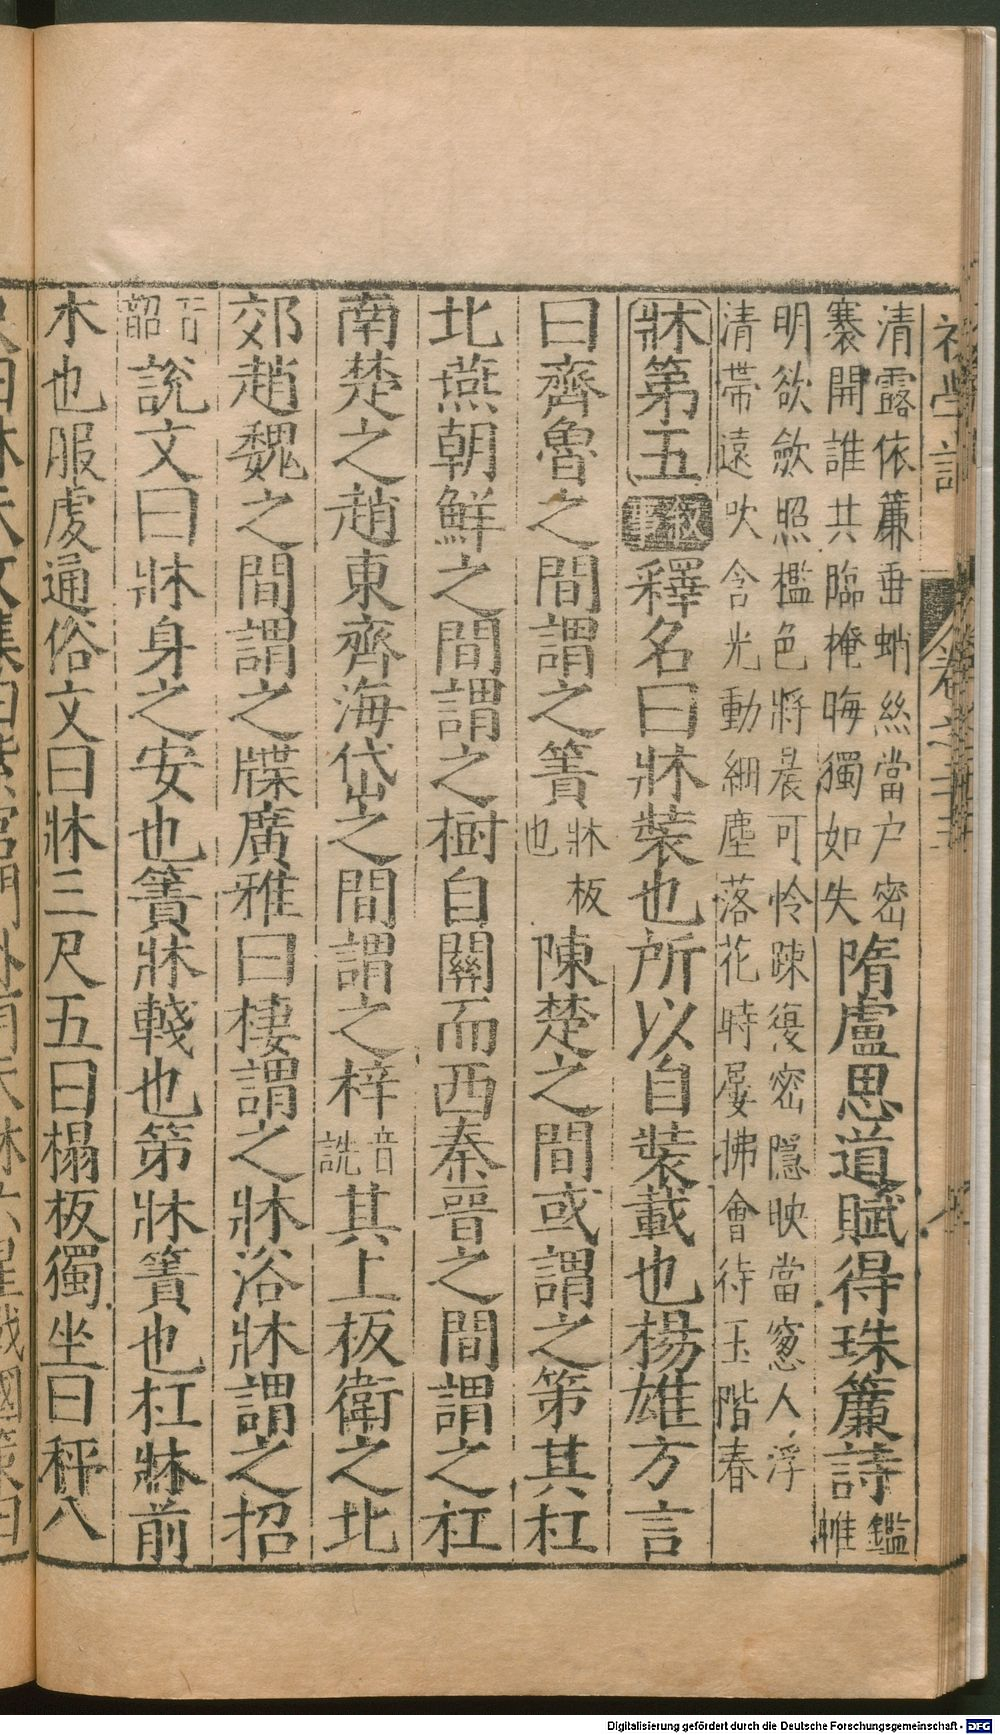 清露依簾垂蛸絲當户密
褰開誰共臨掩晦獨如失
隋盧思道賦得珠簾詩
鑑帷
明欲斂照檻色將晨可怜踈復密隱映當窻人浮
清帶遠吹含光動細塵落花時屢拂會待玉階春
牀第五 叙事 釋名曰牀裝也所以自裝載也楊雄方言
曰齊魯之間謂之簀 牀板也 陳楚之間或謂之第其杠
北燕朝鮮之間謂之樹自關而西秦晉之間謂之杠
南楚之趙東齊海岱之間謂之梓 音詵 其上板衛之北
郊趙魏之間謂之牒廣雅曰棲謂之牀浴牀謂之招
韶 說文曰牀身之安也簀牀棧也第牀簀也杠牀前
木也服虔通俗文曰牀三尺五曰榻板獨坐曰枰八
卷之二十五
Digitalisierung gefördert durch die Deutsche Forschungsgemeinschaft - DFG